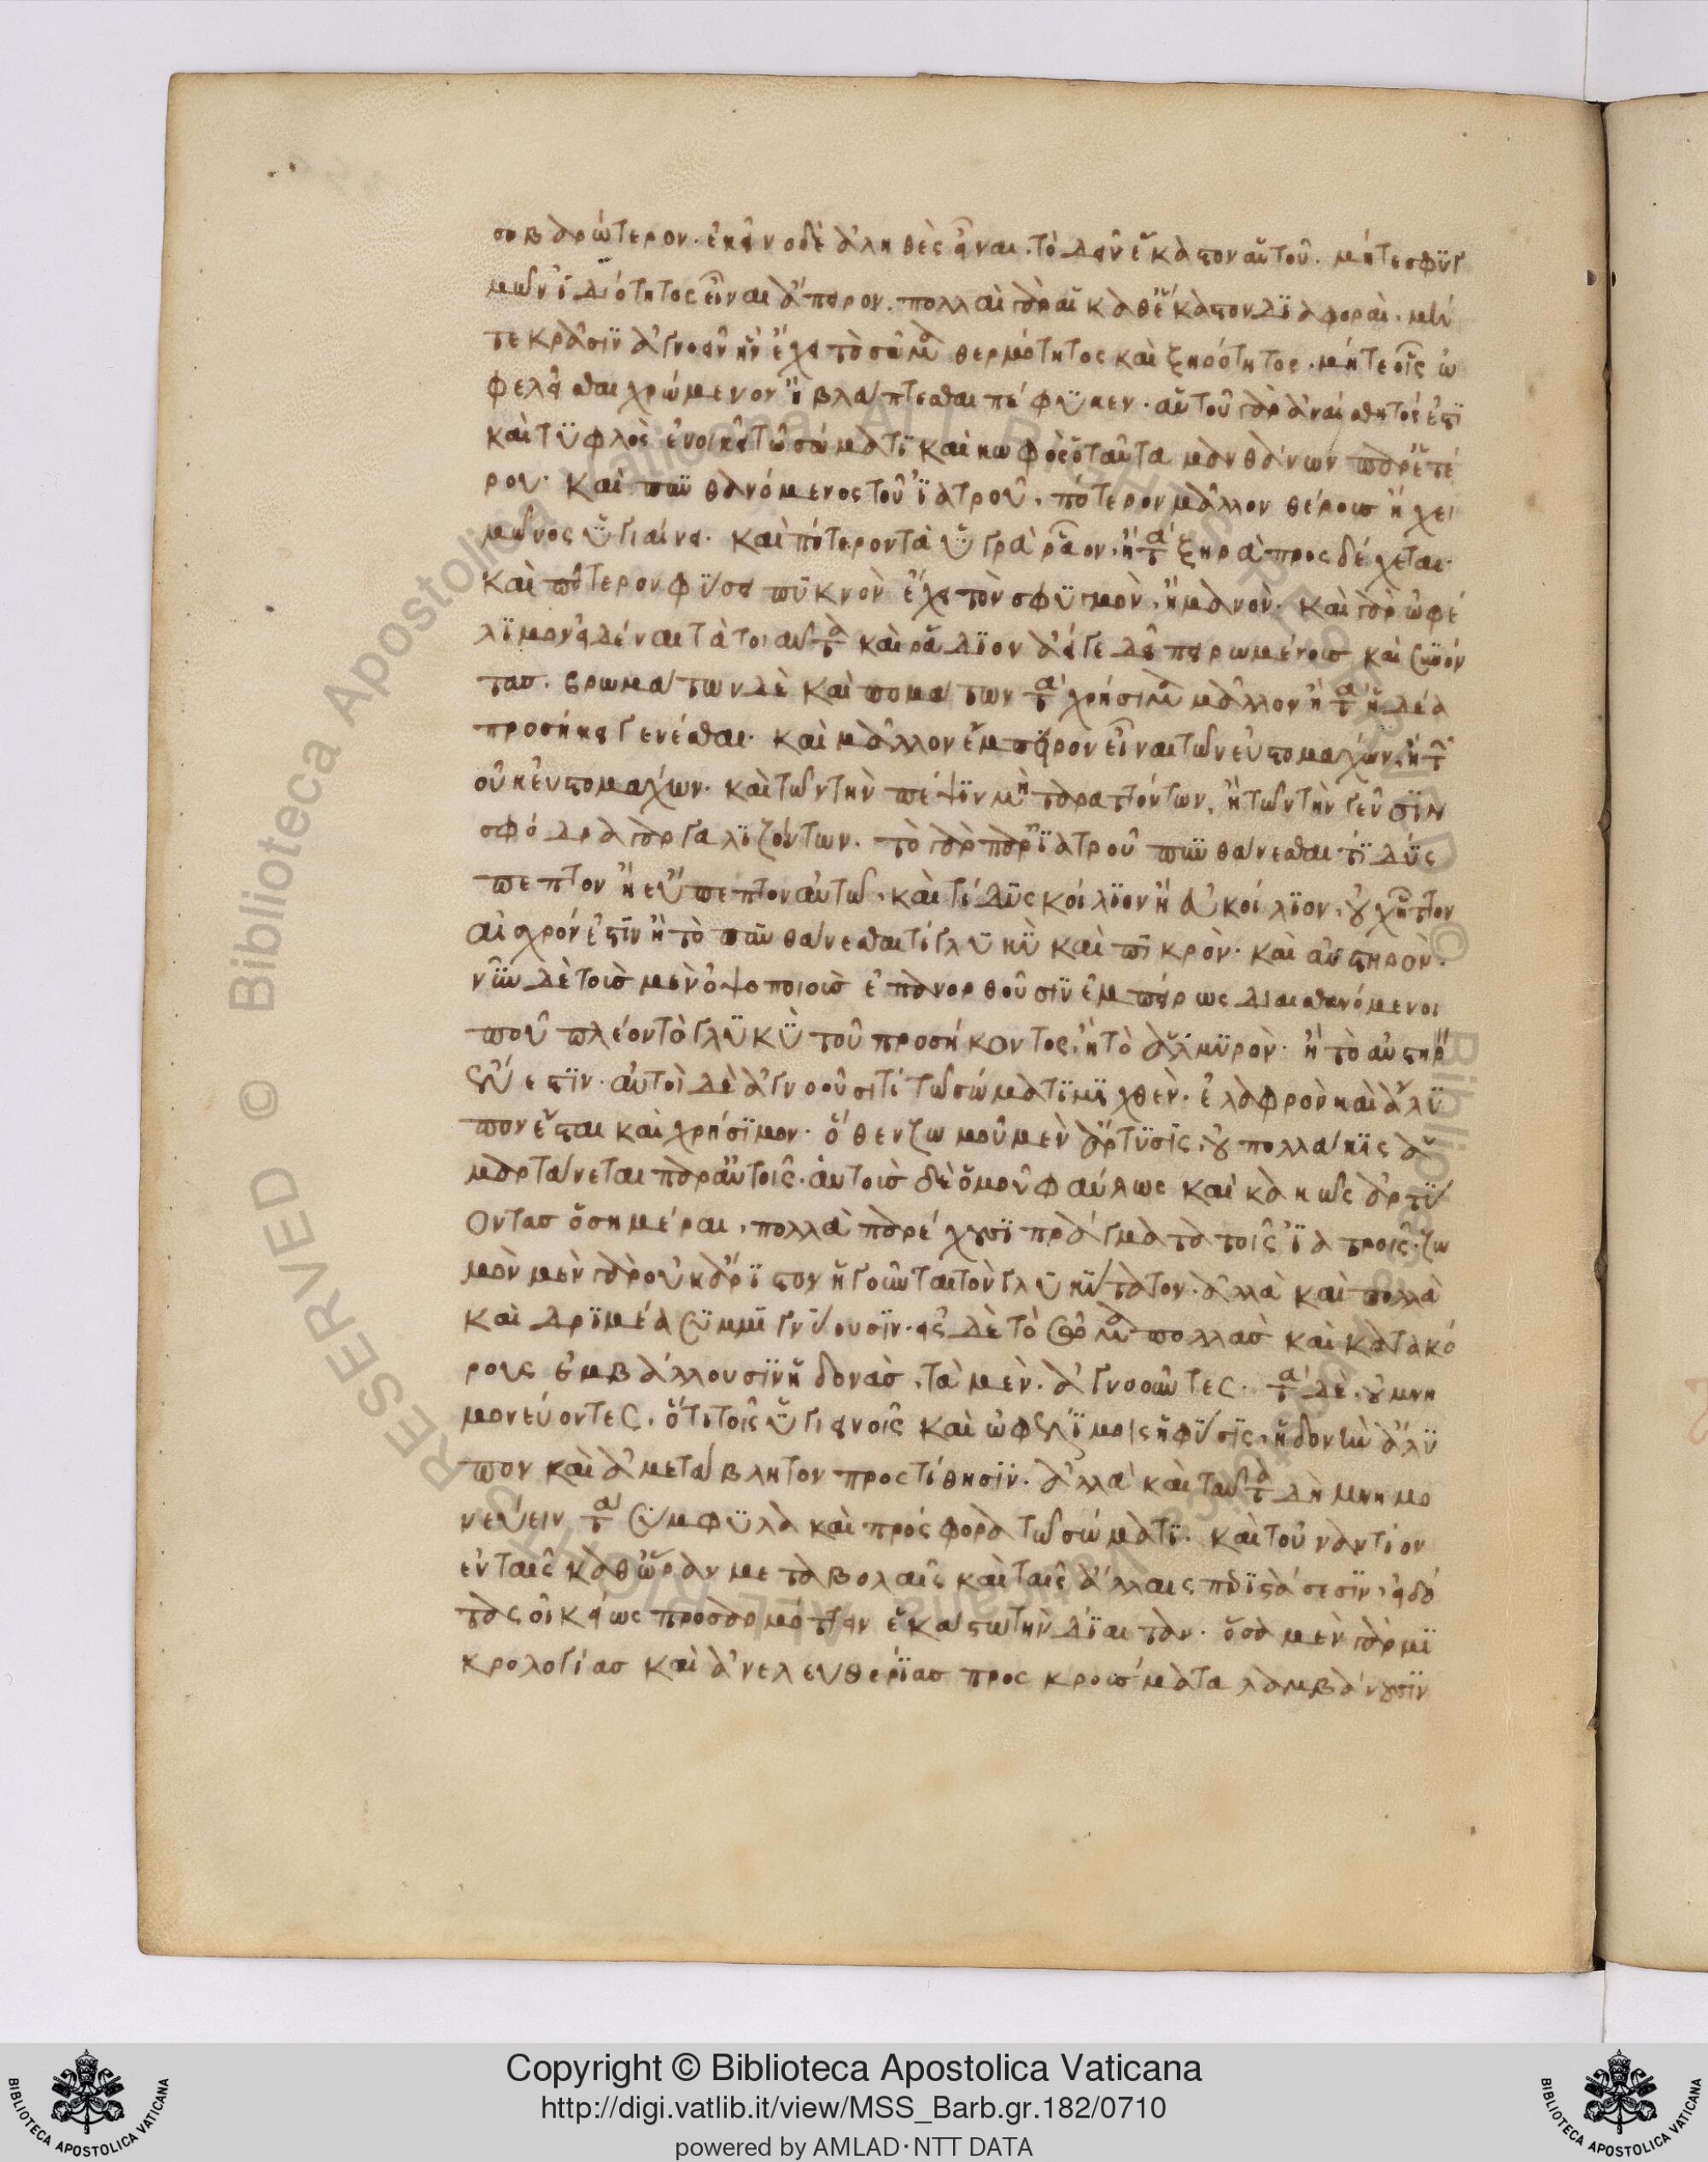 σοβαρώτερον. ἐκεῖνο δὲ ἀληθὲς εἶναι. τὸ δεῖν ἕκαστον αὑτοῦ. μήτε σφυγ
μῶν ἰδιότητος εἶναι ἄπειρον. πολλαὶ γὰρ αἱ καθ' ἕκαστον διαφοραί. μή
τε κρᾶσιν ἀγνοεῖν ἣν ἔχει τὸ σῶμα θερμότητος καὶ ξηρότητος. μήτε οἷς ὠ
φελεῖσθαι χρώμενον ἢ βλάπτεσθαι πέφυκεν. αὑτοῦ γὰρ ἀναίσθητός ἐστι
καὶ τυφλὸς ἐνοικεῖ τῷ σώματι καὶ κωφὸς ὁ ταῦτα μανθάνων παρ' ἑτέ
ρου. καὶ πυνθανόμενος τοῦ ἰατροῦ. πότερον μᾶλλον θέρους ἢ χει
μῶνος ὑγιαίνει. καὶ πότερον τὰ ὑγρὰ ῥᾷον. ἢ τὰ ξηρὰ προσδέχεται.
καὶ πότερον φύσει πυκνὸν ἔχει τὸν σφυγμὸν. ἢ μανὸν. καὶ γὰρ ὠφέ
λιμον εἰδέναι τὰ τοιαῦτα καὶ ῥάδιον ἀεί γε δὴ πειρωμένους καὶ συνόν
τας. βρωμάτων δὲ καὶ πομάτων τὰ χρήσιμα μᾶλλον ἢ τὰ ἡδέα
προσήκει γενέσθαι. καὶ μᾶλλον ἔμπειρον εἶναι τῶν εὐστομάχων. ἢ τῶν
οὐκ εὐστομάχων. καὶ τῶν τὴν πέψιν μὴ ταραττόντων. ἢ τῶν τὴν γεῦσιν
σφόδρα γαργαλιζόντων. τὸ γὰρ παρ' ἰατροῦ πυνθάνεσθαι τί δύς
πεπτον ἢ εὔπεπτον αὐτῷ. καὶ τί δυςκοίλιον ἢ εὐκοίλιον. οὐχ ἧττον
αἰσχρόν ἐστιν ἢ τὸ πυνθάνεσθαι τί γλυκὺ καὶ πικρὸν. καὶ αὐστηρὸν.
νῦν δὲ τοὺς μὲν ὀψοποιοὺς ἐπανορθοῦσιν ἐμπείρως διαισθανόμενοι
ποῦ πλέον τὸ γλυκὺ τοῦ προσήκοντος. ἢ τὸ ἁλμυρὸν. ἢ τὸ αὐστηρόν
ἔνεστιν. αὐτοὶ δὲ ἀγνοοῦσι τί τῷ σώματι μιχθὲν. ἐλαφρὸν καὶ ἄλυ
πον ἔσται καὶ χρήσιμον. ὅθεν ζωμοῦ μὲν ἄρτυσις. οὐ πολλάκις ἁ
μαρτάνεται παρ' αὐτοῖς. αὑτοὺς δὲ ὁμοῦ φαύλως καὶ κακῶς ἀρτύ
οντας ὁσημέραι. πολλὰ παρέχουσι πράγματα τοῖς ἰατροῖς. ζω
μὸν μὲν γὰρ οὐκ ἄριστον ἡγοῦνται τὸν γλυκύτατον. ἀλλὰ καὶ πολλὰ
καὶ δριμέα συμμιγνύουσιν. εἰς δὲ τὸ σῶμα πολλὰς καὶ κατακό
ρους ἐμβάλλουσιν ἡδονὰς. τὰ μὲν. ἀγνοοῦντες. τὰ δὲ. οὐ μνη
μονεύοντες. ὅτι τοῖς ὑγιεινοῖς καὶ ὠφελίμοις ἡ φύσις. ἡδονὴν ἄλυ
πον καὶ ἀμετάβλητον προςτίθησιν. ἀλλὰ καὶ ταῦτα δὴ μνημο
νεύειν τὰ σύμφυλα καὶ πρόςφορα τῷ σώματι. καὶ τοὐναντίον
ἐν ταῖς καθ' ὥραν μεταβολαῖς καὶ ταῖς ἄλλαις περιστάσεσιν. εἰδό
τας οἰκείως προσαρμόττειν ἑκάστῳ τὴν δίαιταν. ὅσα μὲν γὰρ μι
κρολογίας καὶ ἀνελευθερίας προςκρούσματα λαμβάνουσιν
Copyright © Biblioteca Apostolica Vaticana
http://digi.vatlib.it/view/MSS_Barb.gr.182/0710
powered by AMLAD·NTT DATA